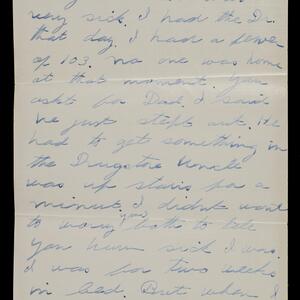 very sick. I had the Dr.
that day. I had a fever
of 103. no one was home
at that moment. You
askt for Dad. I said
he just stept out. He
had to get something in
the Drugstore
was up stairs for a
minut. I didnt want
to worry you both to tell
you how sick I was.
I was for two weeks
in bed. But when I